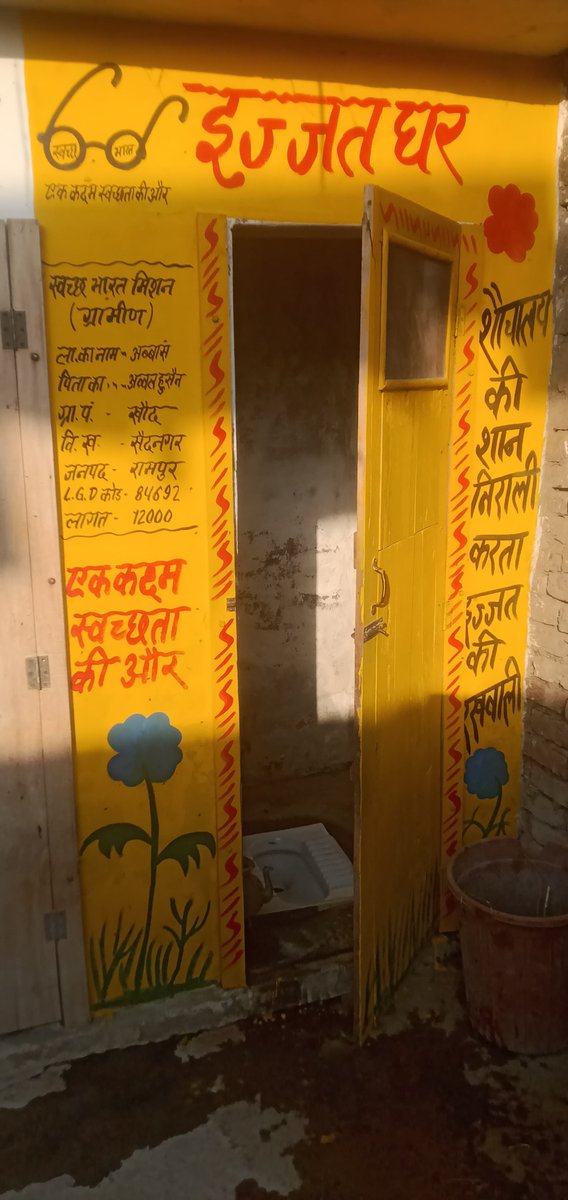 इज्जत घर
स्वच्छ भारत
एक कदम स्वच्छता की और
स्वच्छ भारत मिशन
(ग्रामीण)
ला.का नाम - अब्बास
पिता का ,, - अव्वल हुसैन
ग्रा.पं. - खौद
वि.ख - सैदनगर
जनपद - रामपुर
L.G.D कोड - 84692
लागत - 12000
एक कदम
स्वच्छता
की और
शौचालय
की
शान
निराली
करता
इज्जत
की
रखवाली